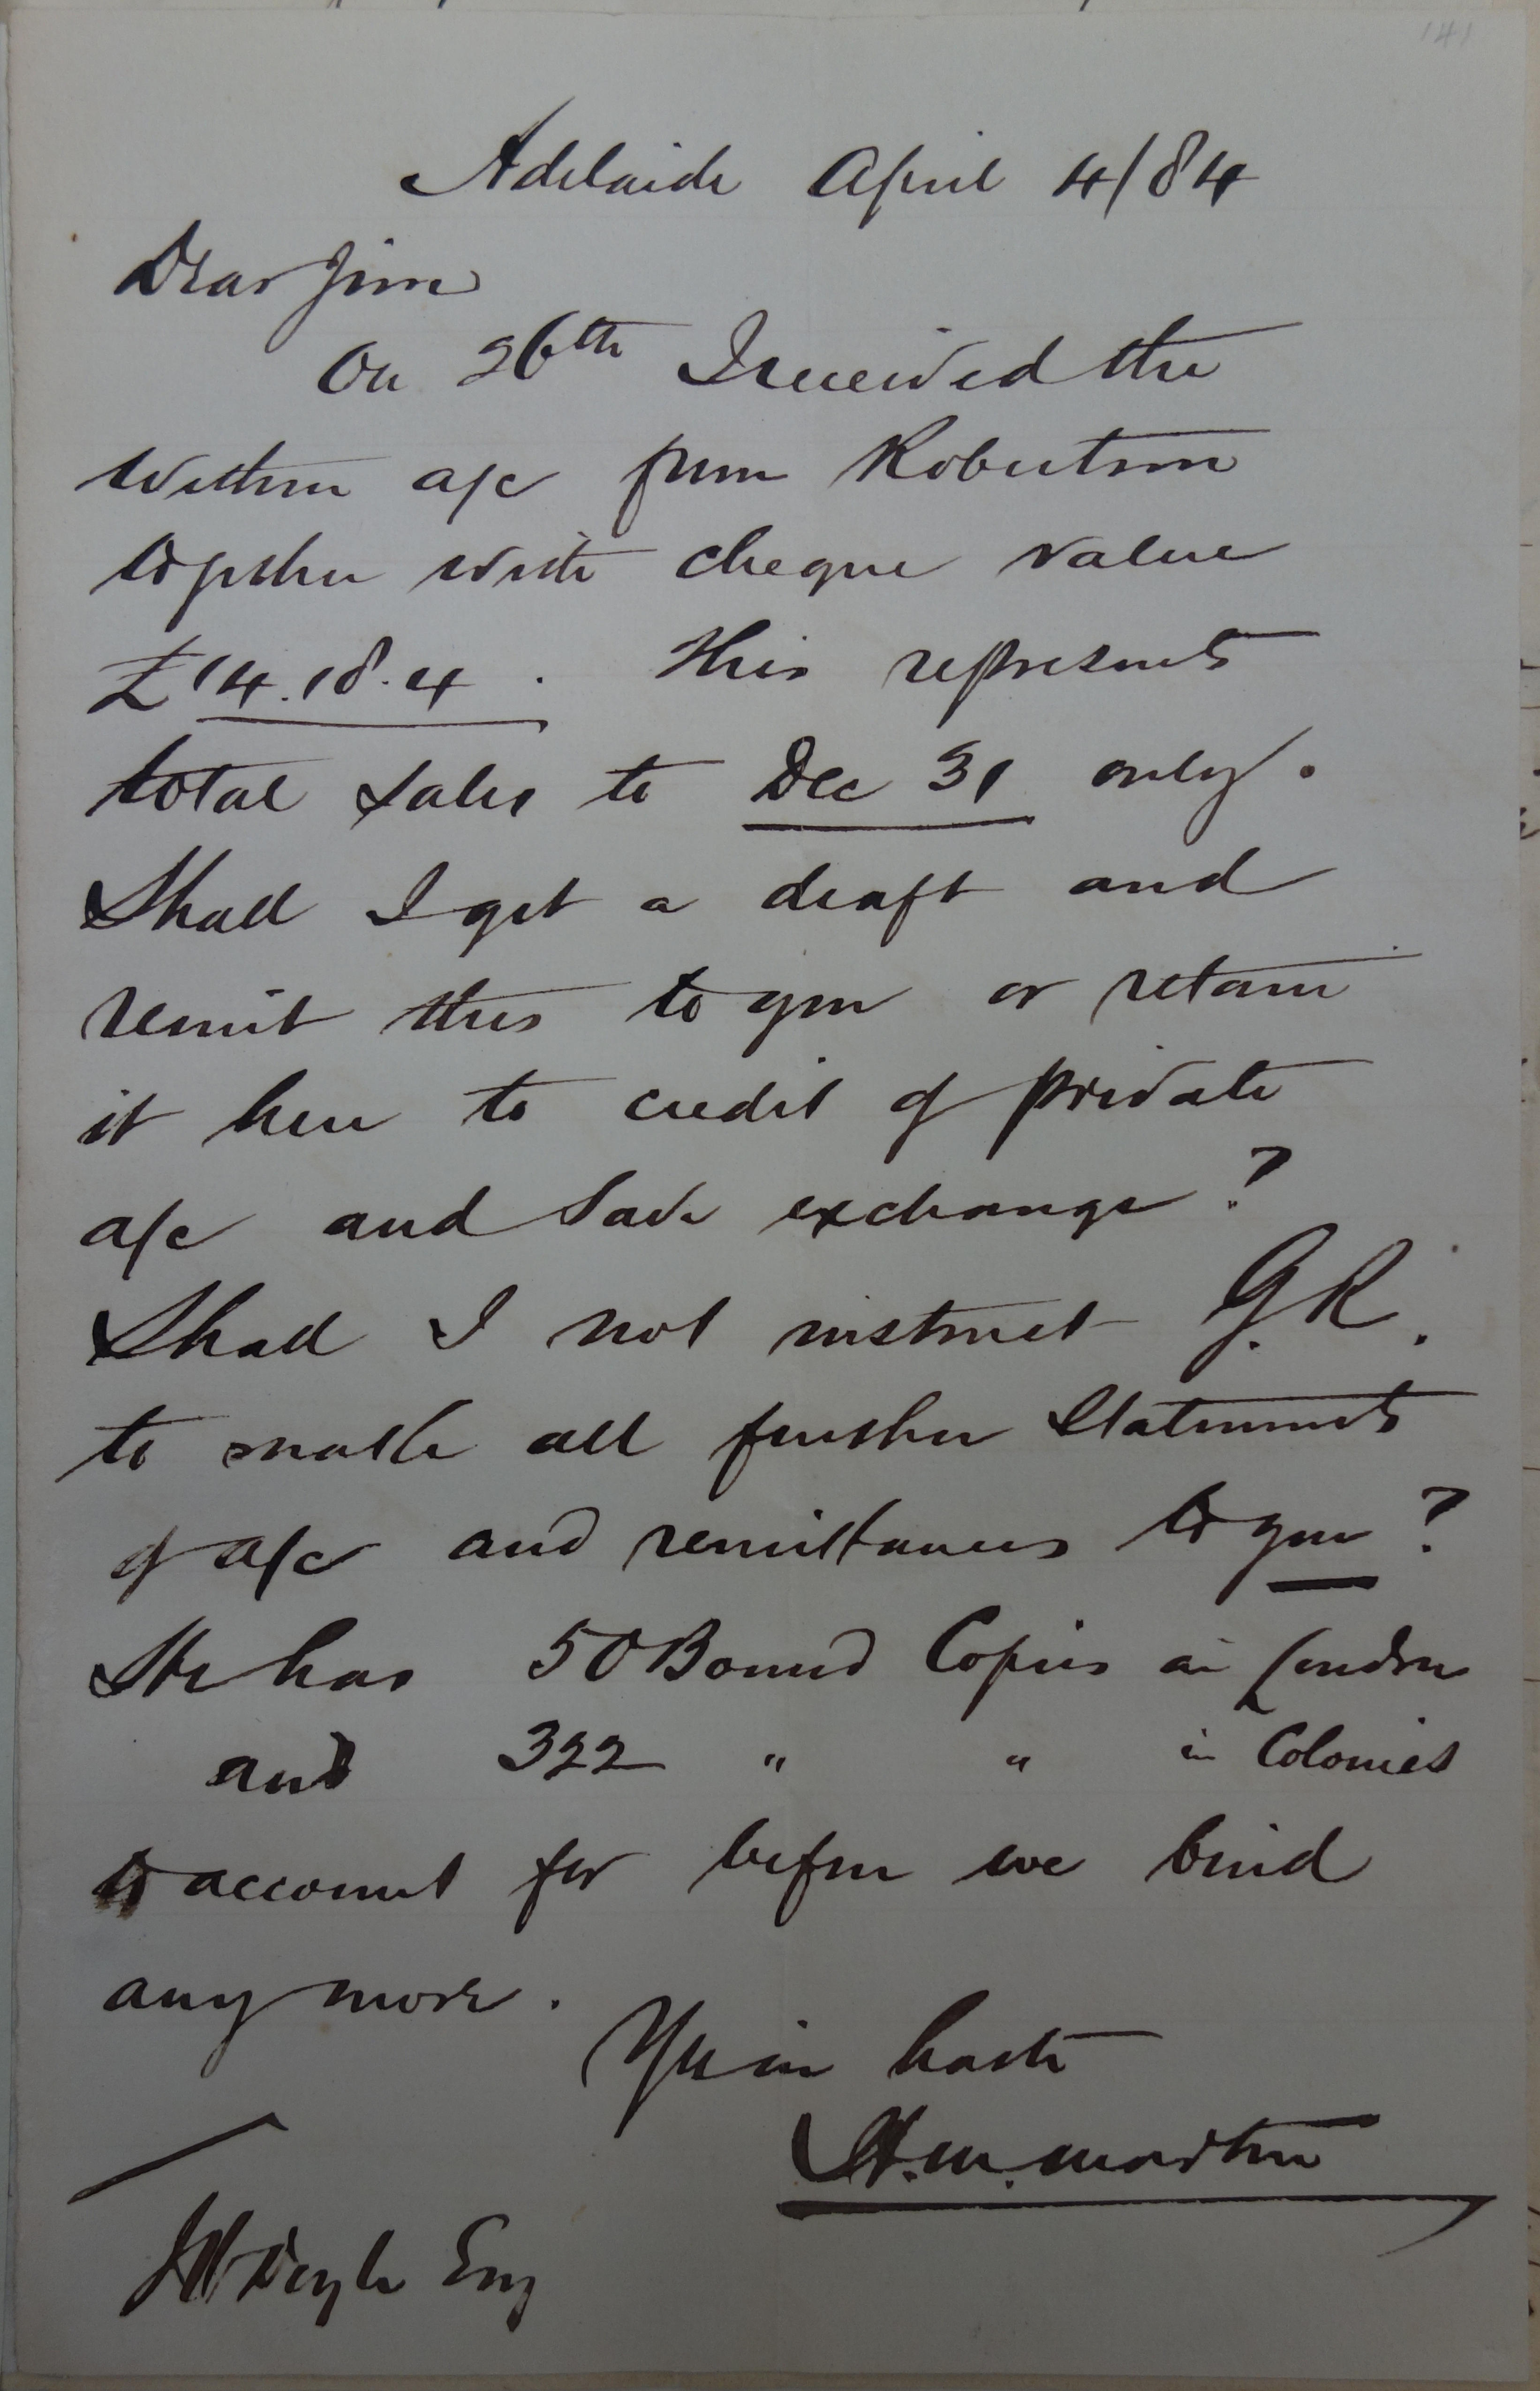 141
Adelaide April 4/84
Dear Jim
On 26th I received the
within a/c from Robertson
together with cheque value
£14.18.4. This represents
total sales to Dec 31 only.
Shall I get a draft and
remit this to you or retain
it here to credit of private
a/c and save exchange?
Shall I not instruct G.R.
to make all further Statements
of a/c and remittances to you?
He has 50 Bound Copies in London
and 322 " " in Colonies
to account for before we bind
any more.
Yrs in haste
H.M. Martin
Esq